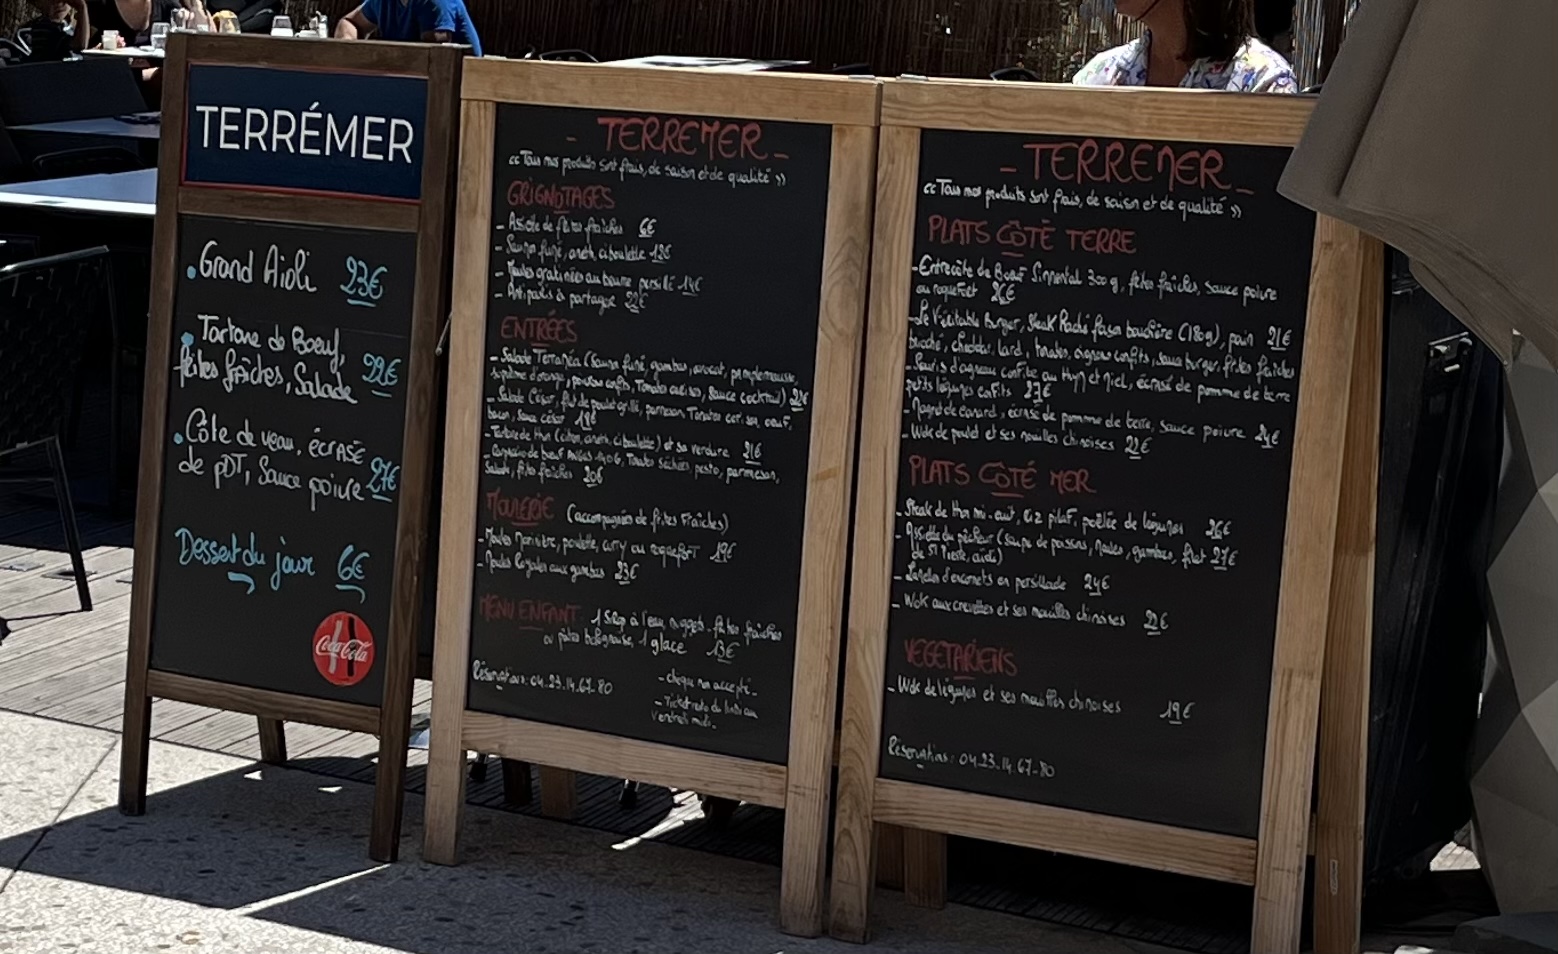 TERRÉMER
Grand Aïoli 23€
Tartare de Boeuf, frites fraîches, Salade 22€
Côte de veau, écrasé
de PDT, Sauce poivre 27€
Dessert du jour 6€
Coca-Cola
- TERREMER -
<< Tous nos produits sont frais, de saison et de qualité >>
GRIGNOTAGES
- Assiette de frites fraîches 6€
- Saumon fumé, aneth, ciboulette 12€
- Moules gratinées au beurre persillé 14€
- Antipastis à partager 22€
ENTRÉES
- Salade Terranéa (Saumon fumé, gambas, avocat, pamplemousse,
suprême d'orange, poivrons confits, Tomates cerises, Sauce cocktail)
- Salade César, filet de poulet grillé, parmesan, Tomates cerises, oeuf,
bacon, sauce césar
- Tartare de thon (citron, aneth, ciboulette) et sa verdure 21€
- Carpaccio de boeuf, Tomates séchées, pesto, parmesan,
Salade, frites fraîches 20€
MOULERIE (accompagnées de frites fraîches)
- Moules Marinière, poulette, curry ou roquefort 19€
- Moules Royales aux gambas 23€
MENU ENFANT: 1 Sirop à l'eau, nuggets - frites fraîches
ou pâtes bolognaise, 1 glace 13€
Réservations: 04.23.14.67.80
- chèque non accepté -
- Ticket resto du lundi au
Vendredi midi -
- TERREMER -
<< Tous nos produits sont frais, de saison et de qualité >>
PLATS CÔTÉ TERRE
- Entrecôte de Boeuf Simmental 300g, frites fraîches, sauce poivre
ou roquefort 26€
- Le Véritable Burger, Steak Haché façon bouchère (180g), pain 21€
brioché, cheddar, lard, tomates, oignons confits, sauce burger, frites fraîches
- Souris d'agneau confite au thym et miel, écrasé de pomme de terre
petits légumes confits 27€
- Magret de canard, écrasé de pomme de terre, sauce poivre 24€
- Wok de poulet et ses nouilles chinoises 22€
PLATS CÔTÉ MER
- Steak de thon mi-cuit, riz pilaf, poêlée de légumes 26€
- Assiette du pêcheur (soupe de poissons, moules, gambas, filet 27€
de St Pierre, aïoli)
- Lamelles d'encornets en persillade 24€
- Wok aux crevettes et ses nouilles chinoises 22€
VEGETARIENS
- Wok de légumes et ses nouilles chinoises 19€
Réservations: 04.23.14.67.80